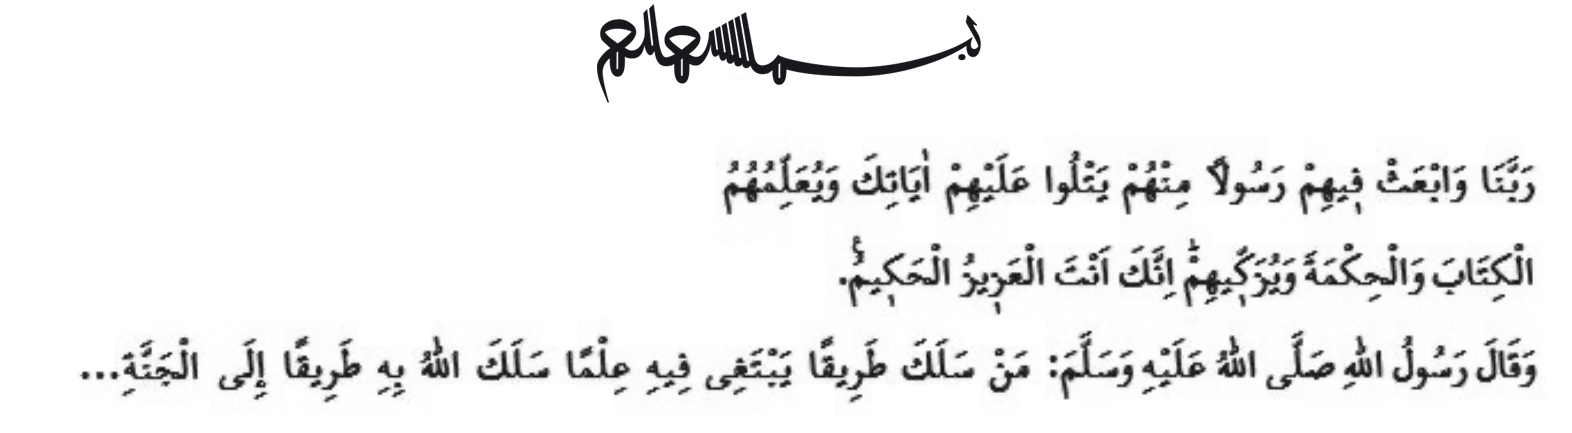 بسم الله الرحمن الرحيم
رَبَّنَا وَابْعَثْ فٖيهِمْ رَسُولًا مِنْهُمْ يَتْلُوا عَلَيْهِمْ اٰيَاتِكَ وَيُعَلِّمُهُمُ
الْكِتَابَ وَالْحِكْمَةَ وَيُزَكّٖيهِمْؕ اِنَّكَ اَنْتَ الْعَزٖيزُ الْحَكٖيمُࣖ.
وَقَالَ رَسُولُ اللّٰهِ صَلَّى اللّٰهُ عَلَيْهِ وَسَلَّمَ: مَنْ سَلَكَ طَرِيقًا يَبْتَغِى فِيهِ عِلْمًا سَلَكَ اللّٰهُ بِهِ طَرِيقًا إِلَى الْجَنَّةِ...